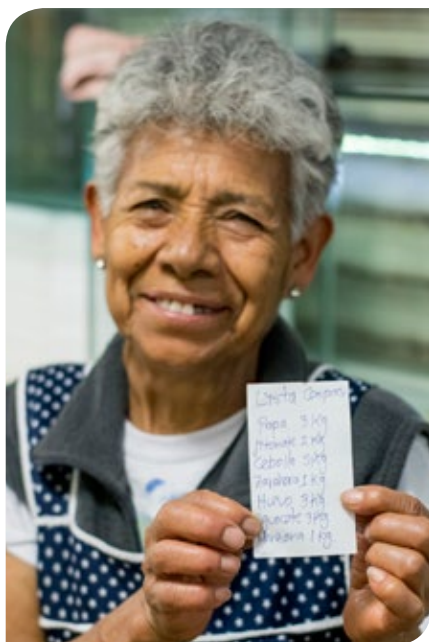 Lista Compras
Papa 3 Kg
Jitomate 2 Kg
Cebolla 5 Kg
Zanahoria 1 Kg
Huevo 3 Kg
Aguacate 3 Kg
1 Kg